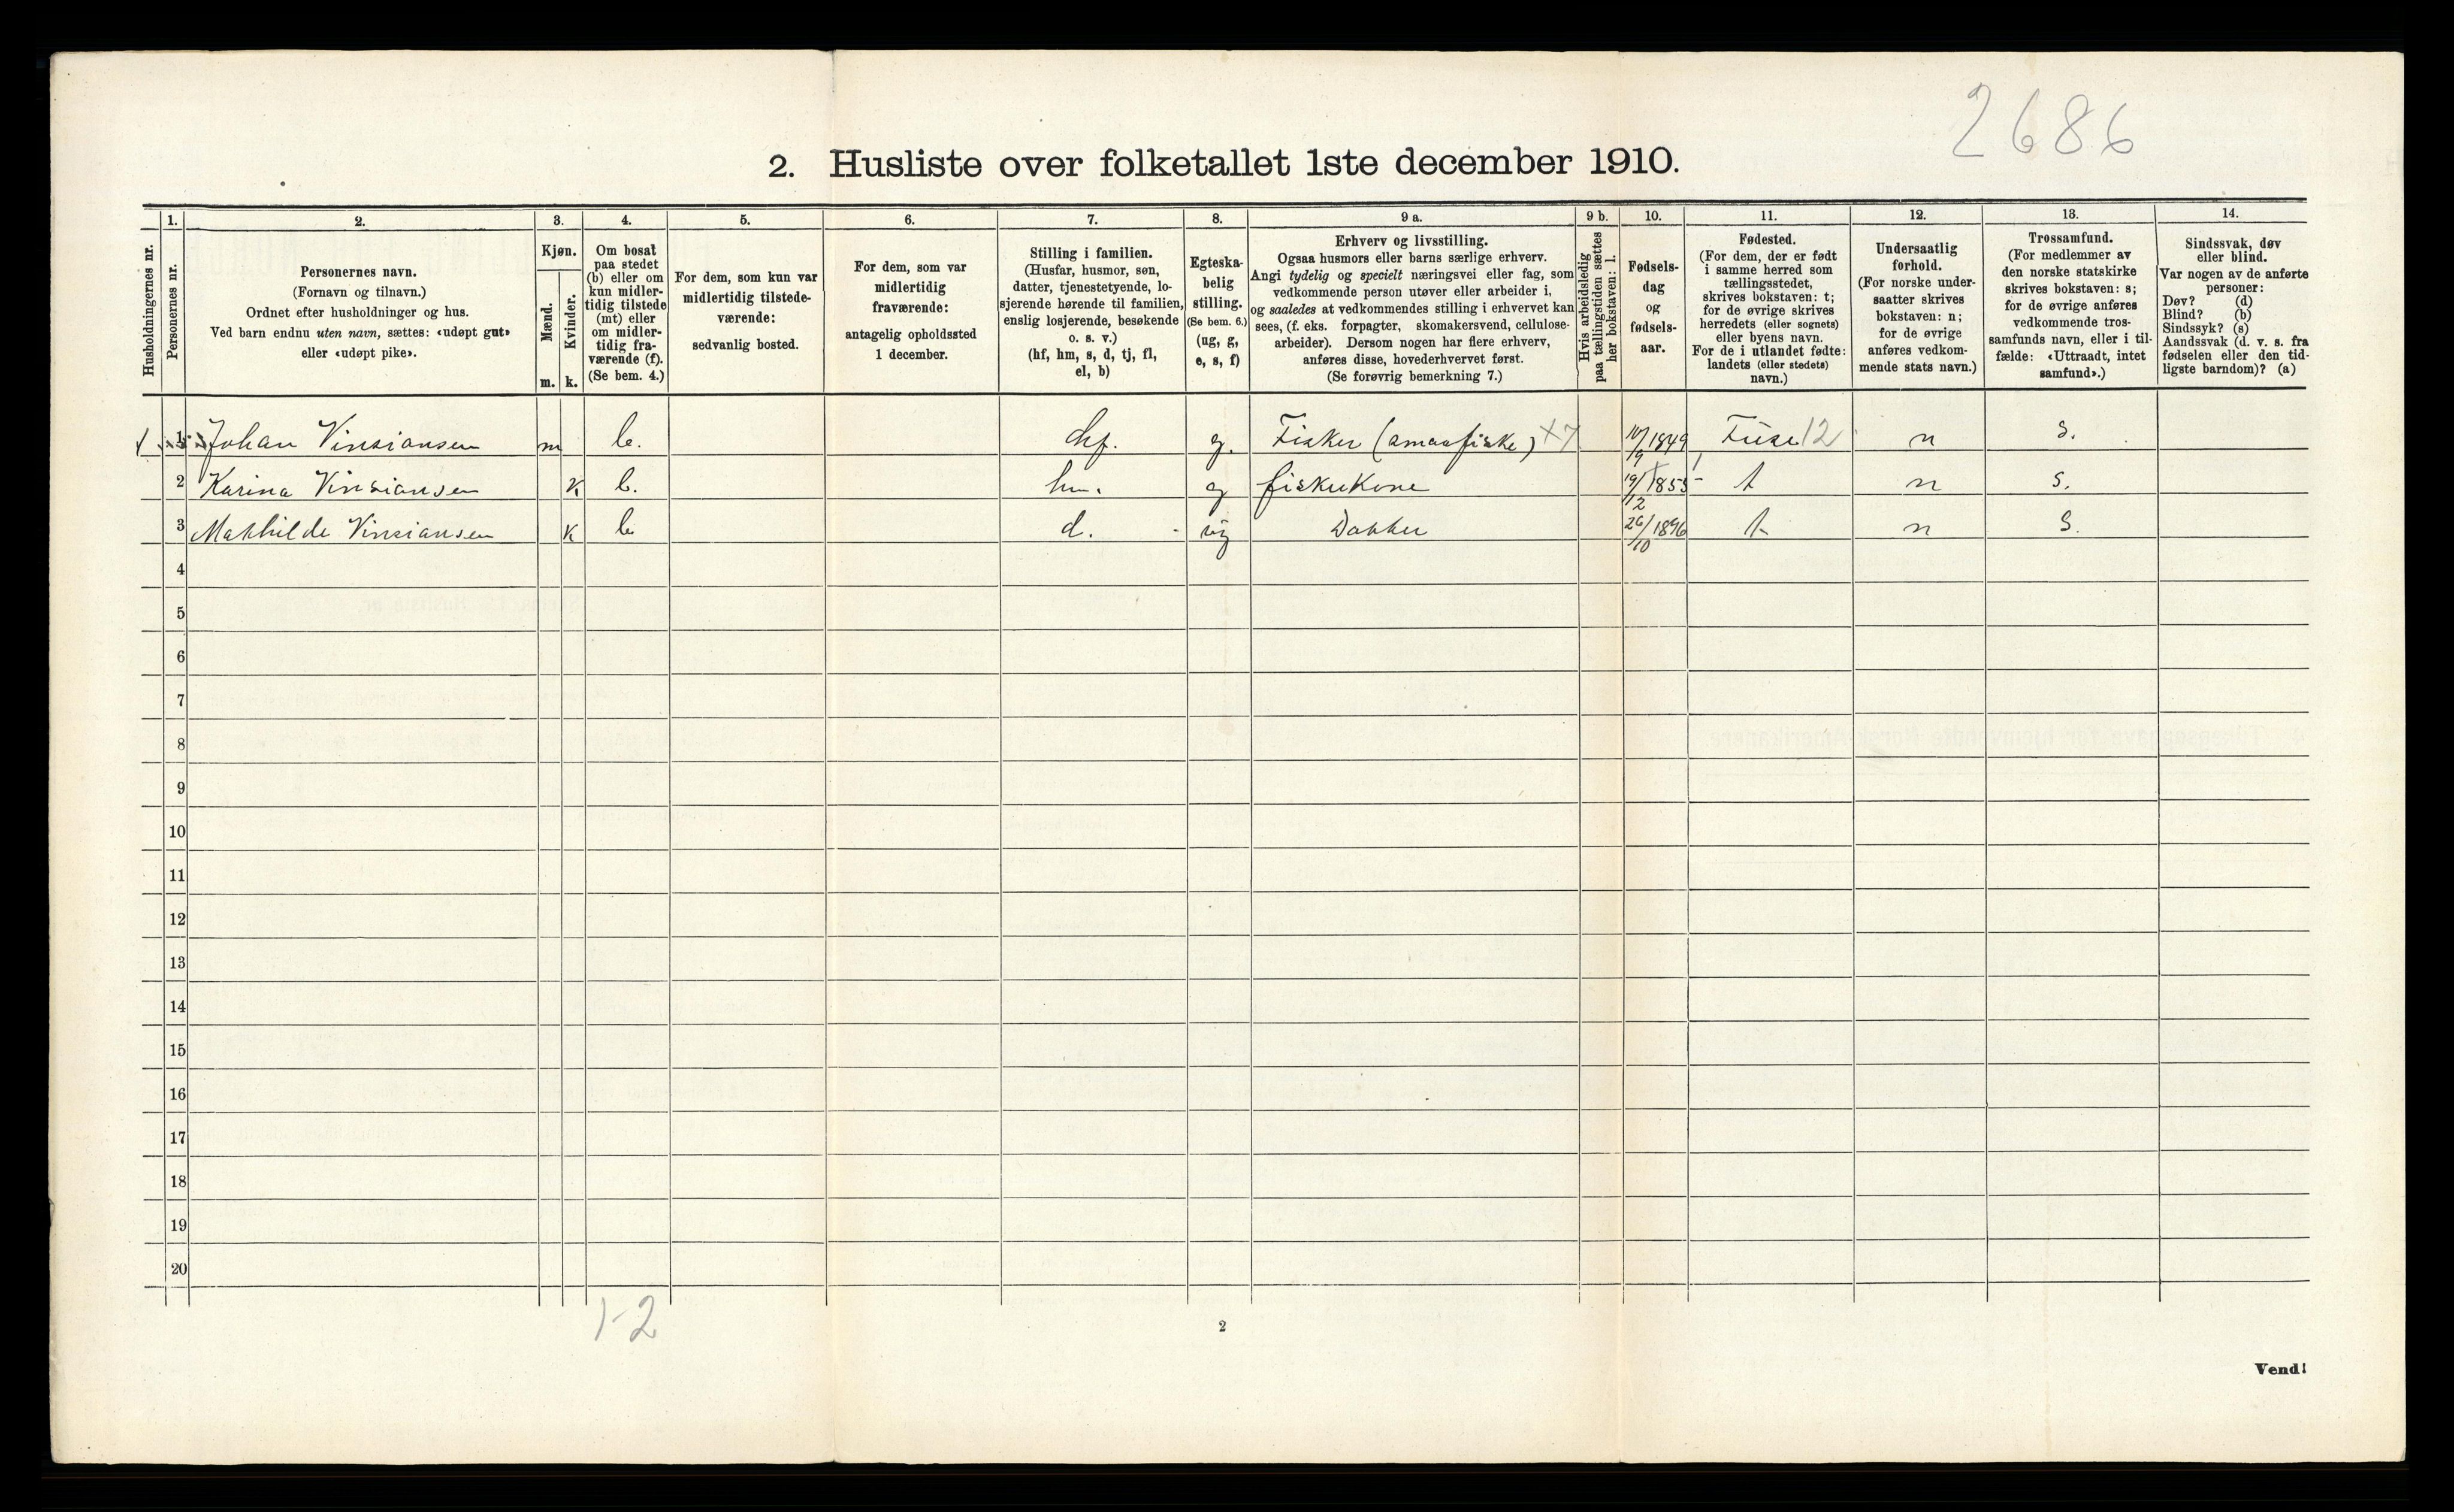 2686
2. Husliste over folketallet 1ste december 1910.
Husholdningernes nr.
1.
Personernes nr.
2.
Personernes navn.
(Fornavn og tilnavn.)
Ordnet efter husholdninger og hus.
Ved barn endnu uten navn, sættes: «udøpt gut»
eller «udøpt pike».
3.
Kjøn.
Mænd.
Kvinder.
m. k.
4.
Om bosat
paa stedet
(b) eller om
kun midler-
tidig tilstede
(mt) eller
om midler-
tidig fra-
værende (f).
(Se bem. 4.)
5.
For dem, som kun var
midlertidig tilstede-
værende:
sedvanlig bosted.
6.
For dem, som var
midlertidig
fraværende:
antagelig opholdssted
1 december.
7.
Stilling i familien.
(Husfar, husmor, søn,
datter, tjenestetyende, lo-
sjerende hørende til familien,
enslig losjerende, besøkende
o. s. v.)
(hf, hm, s, d, tj, fl,
el, b)
8.
Egteska-
belig
stilling.
(Se bem. 6.)
(ug, g,
e, s, f)
9 a.
Erhverv og livsstilling.
Ogsaa husmors eller barns særlige erhverv.
Angi tydelig og specielt næringsvei eller fag, som
vedkommende person utøver eller arbeider i,
og saaledes at vedkommendes stilling i erhvervet kan
sees, (f. eks. forpagter, skomakersvend, cellulose-
arbeider). Dersom nogen har flere erhverv,
anføres disse, hovederhvervet først.
(Se forøvrig bemerkning 7.)
9 b.
Hvis arbeidsledig
paa tællingstiden sættes
her bokstaven: l.
10.
Fødsels-
dag
og
fødsels-
aar.
11.
Fødested.
(For dem, der er født
i samme herred som
tællingsstedet,
skrives bokstaven: t;
for de øvrige skrives
herredets (eller sognets)
eller byens navn.
For de i utlandet fødte:
landets (eller stedets)
navn.)
12.
Undersaatlig
forhold.
(For norske under-
saatter skrives
bokstaven: n;
for de øvrige
anføres vedkom-
mende stats navn.)
13.
Trossamfund.
(For medlemmer av
den norske statskirke
skrives bokstaven: s;
for de øvrige anføres
vedkommende tros-
samfunds navn, eller i til-
fælde: «Uttraadt, intet
samfund».)
14.
Sindssvak, døv
eller blind.
Var nogen av de anførte
personer:
Døv? (d)
Blind? (b)
Sindssyk? (s)
Aandssvak (d. v. s. fra
fødselen eller den tid-
ligste barndom)? (a)
1 Johan Vinsiansen m b. hf. g. Fisker (smaafiske) x7 10/9 1849 Fuse 12 n s.
2 Karina Vinsiansen k b. hm. g fiskerkone 19/12 1855 t n s.
3 Mathilde Vinsiansen k b d. ug Datter 26/10 1896 t n s.
4
5
6
7
8
9
10
11
12
13
14
15
16
17
18
19
20
1-2
2
Vend!